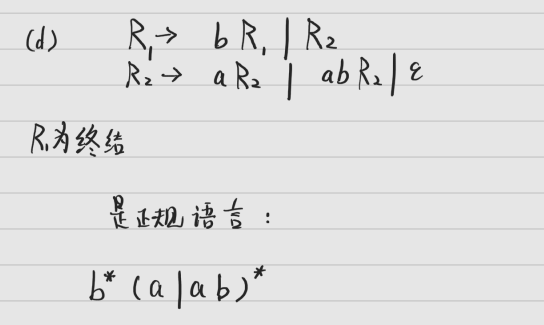 (d) R₁→ b R₁ | R₂
R₂→ a R₂ | ab R₂ | ε
R₁为终结
是正规语言：
b* (a|ab)*